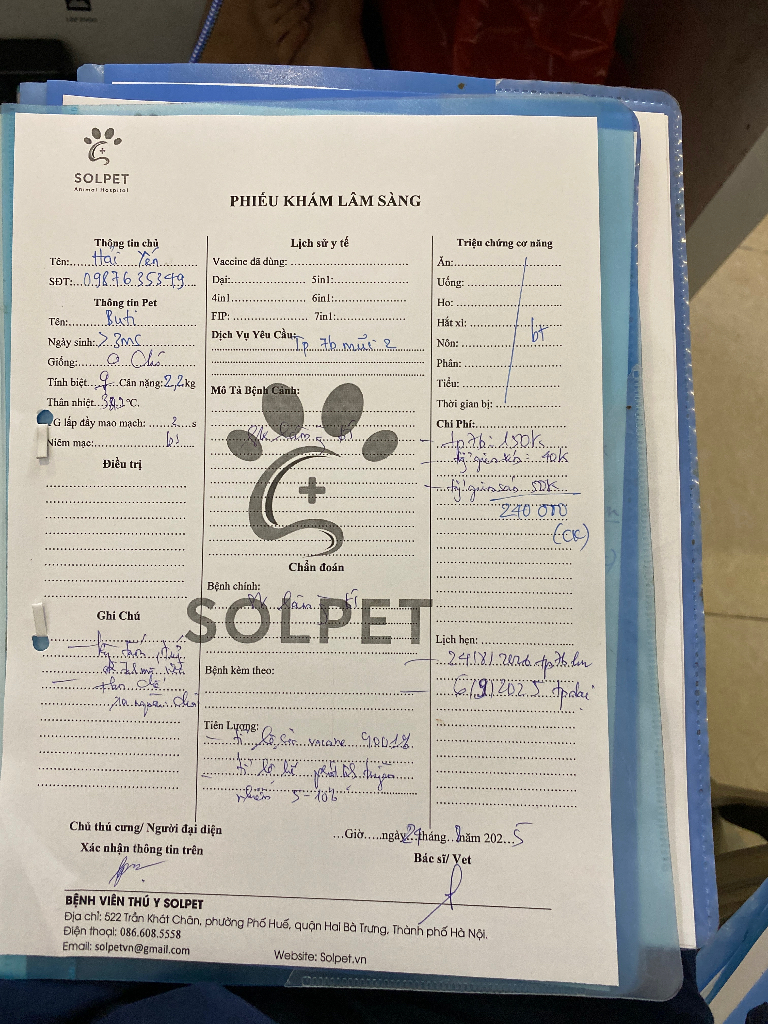 SOLPET
Animal Hospital
PHIẾU KHÁM LÂM SÀNG
Thông tin chủ
Tên: Hải Yến
SĐT: 0987635349
Thông tin Pet
Tên: Buti
Ngày sinh: > 3
Giống: Chó
Tính biệt: Cân nặng: 2,2 kg
Thân nhiệt °C.
TG lấp đầy mao mạch: 2 s
Niêm mạc: bt
Điều trị
Ghi Chú
Lịch sử y tế
Vaccine đã dùng:
Dại: 5in1:
4in1 6in1:
FIP: 7in1:
Dịch Vụ Yêu Cầu: Tp 7b mũi 2
Mô Tả Bệnh Cảnh:
Chẩn đoán
Bệnh chính:
SOLPET
Bệnh kèm theo:
Tiên Lượng:
- tỉ lệ
- tỉ lệ
5-10%
Triệu chứng cơ năng
Ăn:
Uống:
Ho:
Hắt xì: bt
Nôn:
Phân:
Tiểu:
Thời gian bị:
Chi Phí:
- tp 7b: 150K
- 40K
- 50K
240 000
(CK)
Lịch hẹn:
6/9/2025 tp dại
Chủ thú cưng/ Người đại diện
Xác nhận thông tin trên
...Giờ.....ngày tháng 8 năm 2025
Bác sĩ/ Vet
BỆNH VIỆN THÚ Y SOLPET
Địa chỉ: 522 Trần Khát Chân, phường Phố Huế, quận Hai Bà Trưng, Thành phố Hà Nội.
Điện thoại: 086.608.5558
Email: solpetvn@gmail.com Website: Solpet.vn